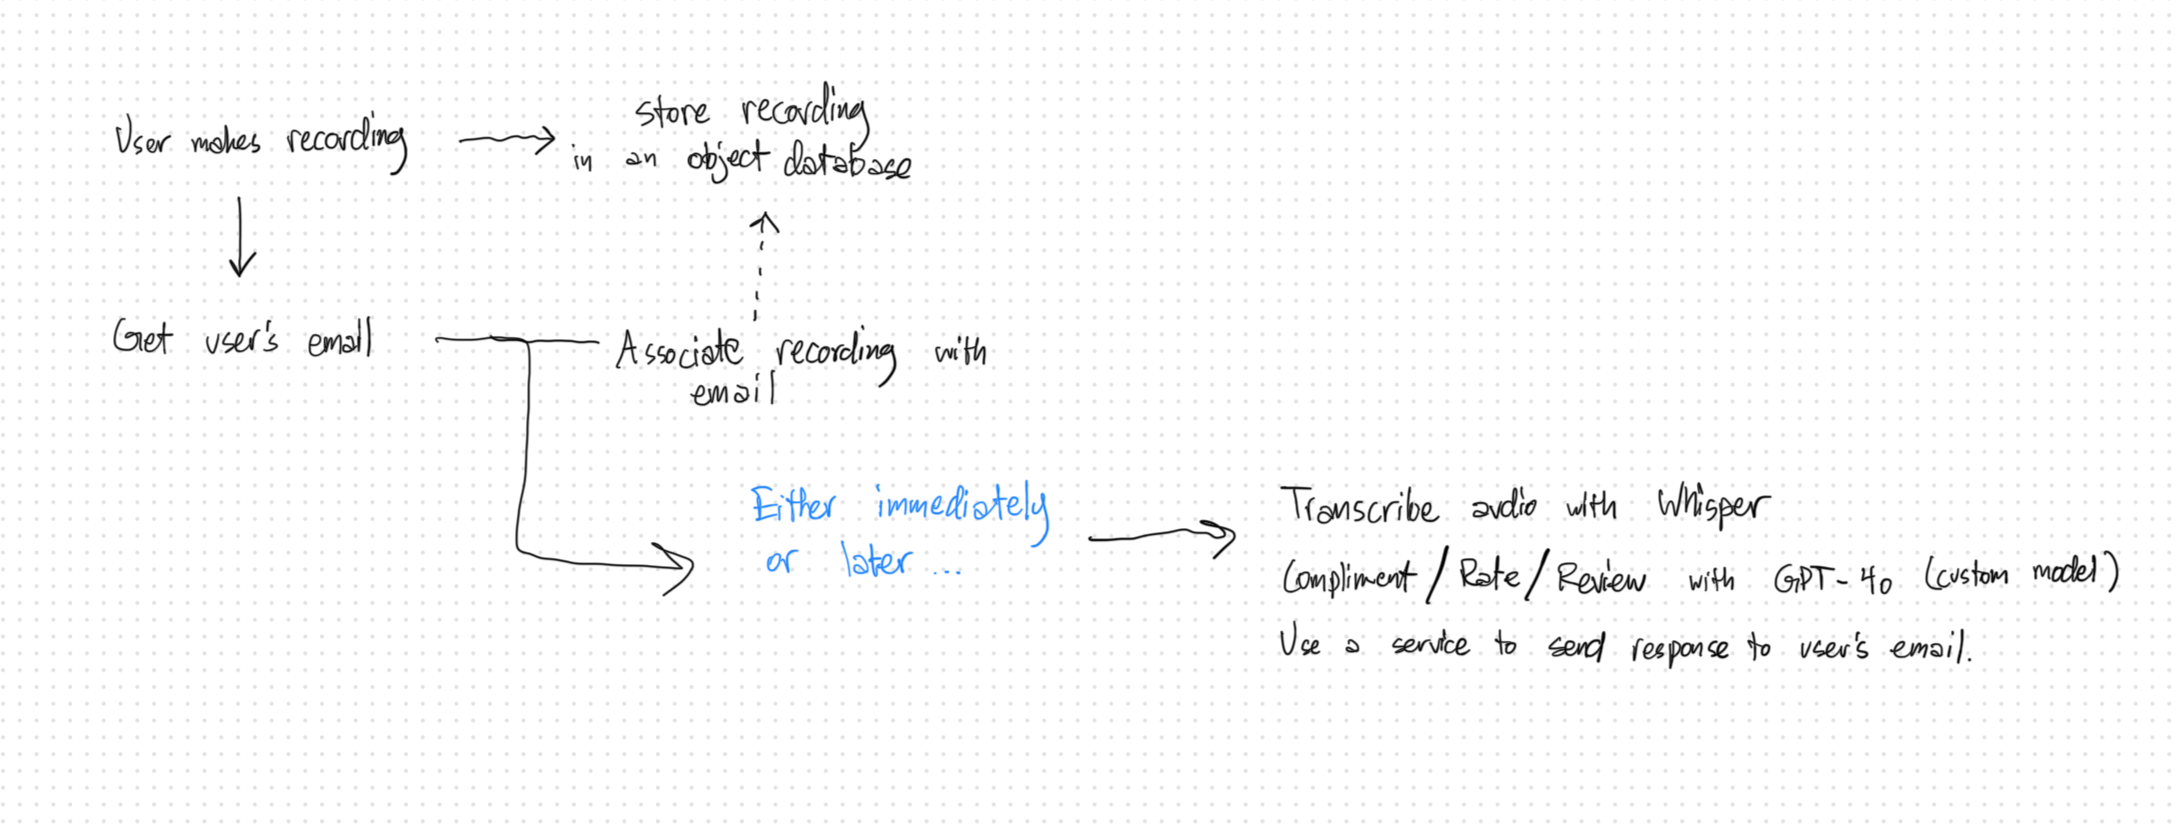 User makes recording
store recording
in an object database
Get user's email
Associate recording with
email
Either immediately
or later ...
Transcribe audio with Whisper
Compliment / Rate / Review with GPT-4o (custom model)
Use a service to send response to user's email.